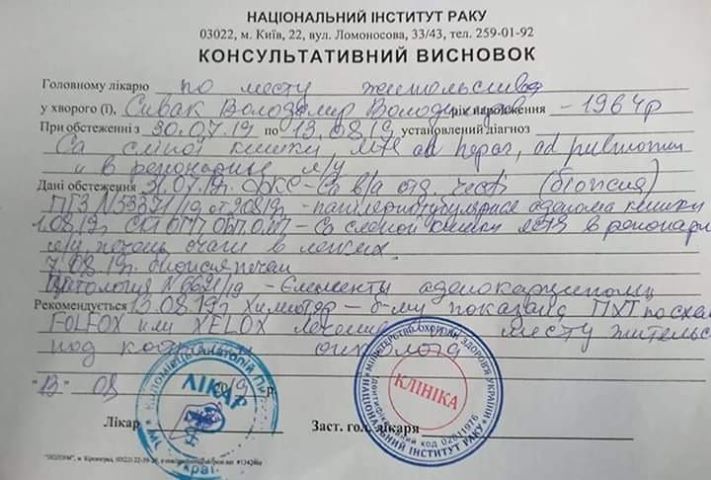 НАЦІОНАЛЬНИЙ ІНСТИТУТ РАКУ
03022, м. Київ, 22, вул. Ломоносова, 33/43, тел. 259-01-92
КОНСУЛЬТАТИВНИЙ ВИСНОВОК
Головному лікарю по месту жительства
у хворого (ї), Сивак Володимир Володимирович рік народження - 1964р
При обстеженні з 30.07.19 по 13.08.19 установлений діагноз
Са слепой кишки, mts ad hepar, ad pulmonum
и в регионарные л/у
Дані обстеження 31.07.19г. ФКС - Са в/а отд. (биопсия)
ПГЗ №53371/19 от 9.08.19г - аденома кишки
1.08.19г ОГП ОБП ОМТ - Са слепой кишки mts в регионарн
л/у печень очаги в легких.
7.08.19г биопсия печени
Цитология №6621/19 - Елементы аденокарциномы
Рекомендується 13.08.19г Химиотер - б-му показана ПХТ по схеме
FOLFOX или XELOX месту жительс
под онколога
"13" 08 19 р.
Лікар
Заст. гол. лікаря
ЛІКАР
КЛІНІКА
МІНІСТЕРСТВО ОХОРОНИ ЗДОРОВ'Я УКРАЇНИ
НАЦІОНАЛЬНИЙ ІНСТИТУТ РАКУ